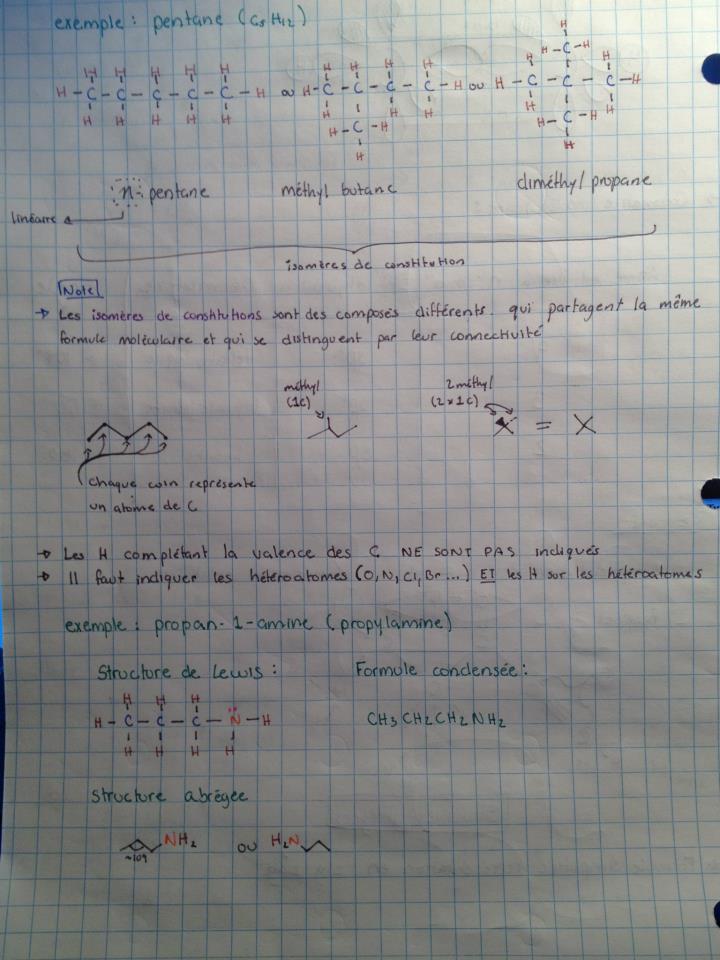 exemple : pentane (C5H12)
H H H H H H H H H H H
H-C-C-C-C-C-H ou H-C-C-C-C-H ou H-C-C-C-H
H H H H H H H H
H-C-H H-C-H H-C-H
H H H
n-pentane méthyl butane diméthyl propane
linéaire
isomères de constitution
Note
→ Les isomères de constitutions sont des composés différents qui partagent la même
formule moléculaire et qui se distinguent par leur connectivité
méthyl 2 méthyl
(1C) (2x1C)
=
chaque coin représente
un atome de C
→ Les H complétant la valence des C NE SONT PAS indiqués
→ Il faut indiquer les hétéroatomes (O, N, Cl, Br...) ET les H sur les hétéroatomes
exemple : propan-1-amine (propylamine)
Structure de Lewis : Formule condensée :
H H H
H-C-C-C-N-H CH3CH2CH2NH2
H H H H
Structure abrégée
NH2 ou H2N
~109